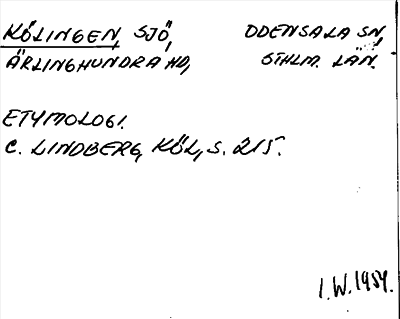 KÖLINGEN, SJÖ, ODENSALA SN,
ÄRLINGHUNDRA HD, STHLM. LÄN.
ETYMOLOGI.
C. LINDBERG, KÖL, S. 215.
I.W. 1954.